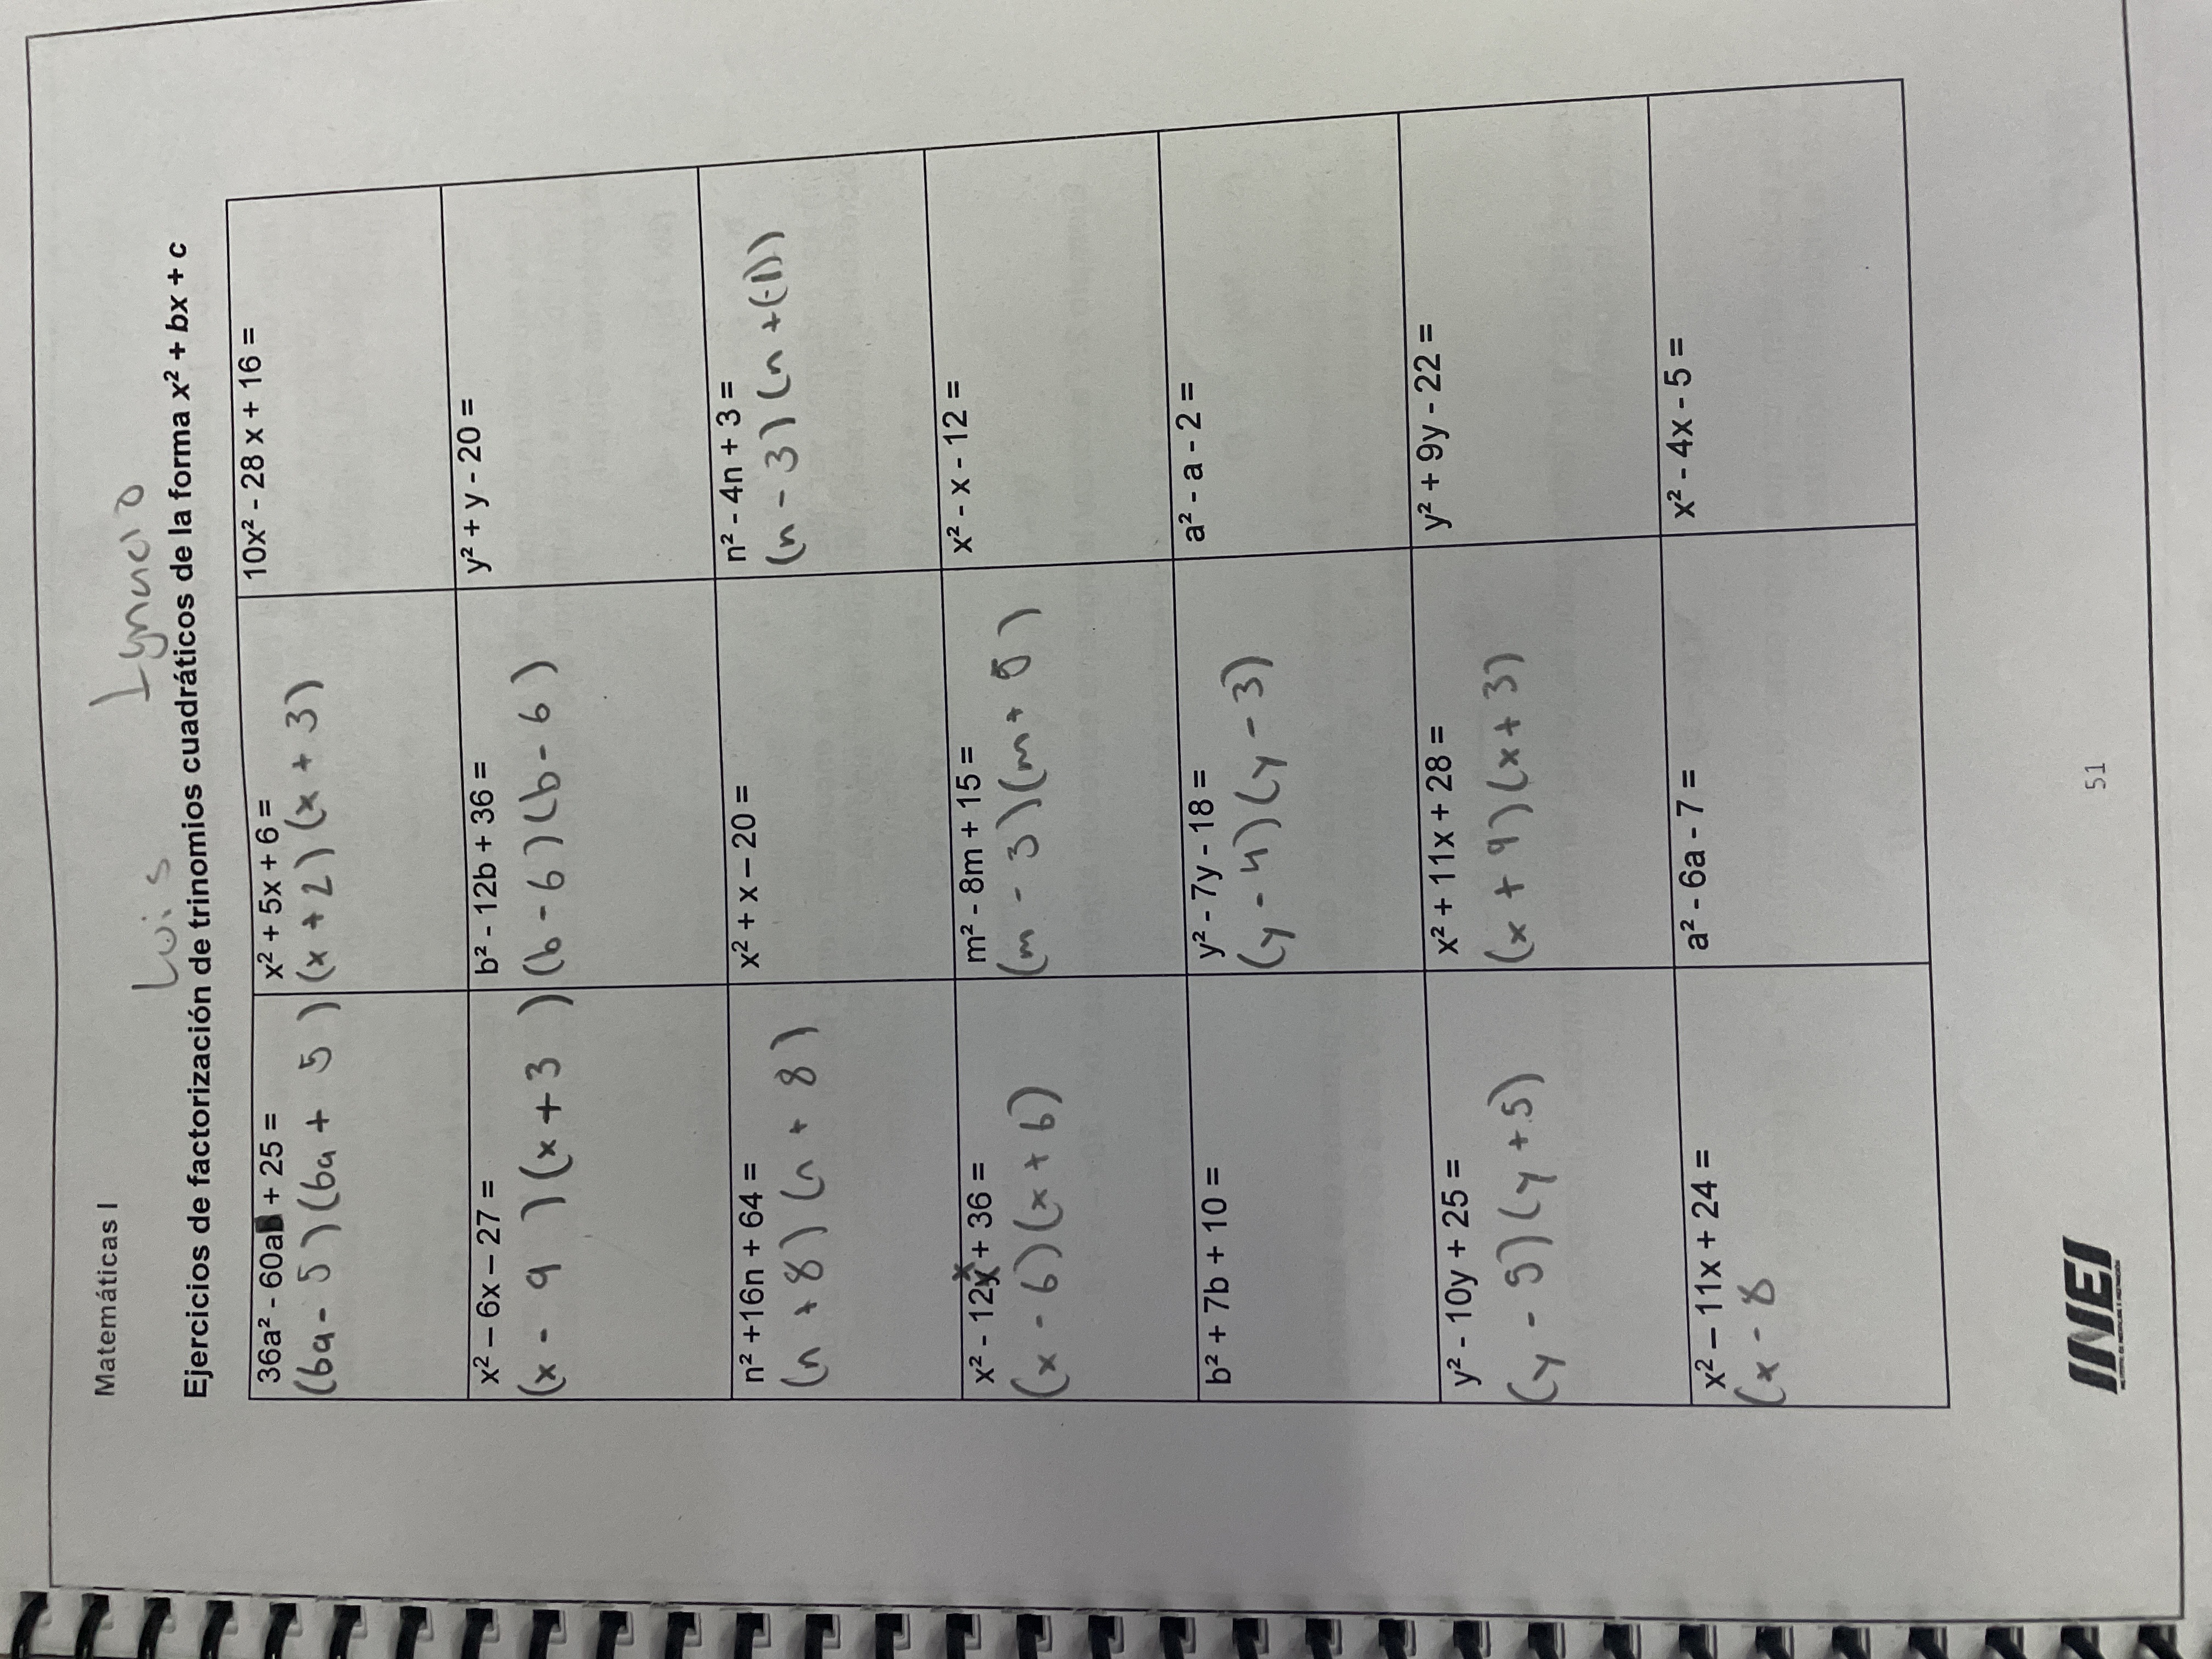 Matemáticas I
Luis Ignacio
Ejercicios de factorización de trinomios cuadráticos de la forma x² + bx + c
36a² - 60a + 25 =
(6a - 5)(6a + 5)
x² + 5x + 6 =
(x + 2)(x + 3)
10x² - 28 x + 16 =
x² – 6x – 27 =
(x - 9)(x + 3)
b² - 12b + 36 =
(b - 6)(b - 6)
y² + y - 20 =
n² +16n + 64 =
(n + 8)(n + 8)
x² + x – 20 =
n² - 4n + 3 =
(n - 3)(n + (-1))
x² - 12x + 36 =
(x - 6)(x + 6)
m² - 8m + 15 =
(m - 3)(m + 5)
x² - x - 12 =
b² + 7b + 10 =
y² - 7y - 18 =
(y - 4)(y - 3)
a² - a - 2 =
y² - 10y + 25 =
(y - 5)(y + 5)
x² + 11x + 28 =
(x + 9)(x + 3)
y² + 9y - 22 =
x² – 11x + 24 =
(x - 8
a² - 6a - 7 =
x² - 4x - 5 =
INEI
51